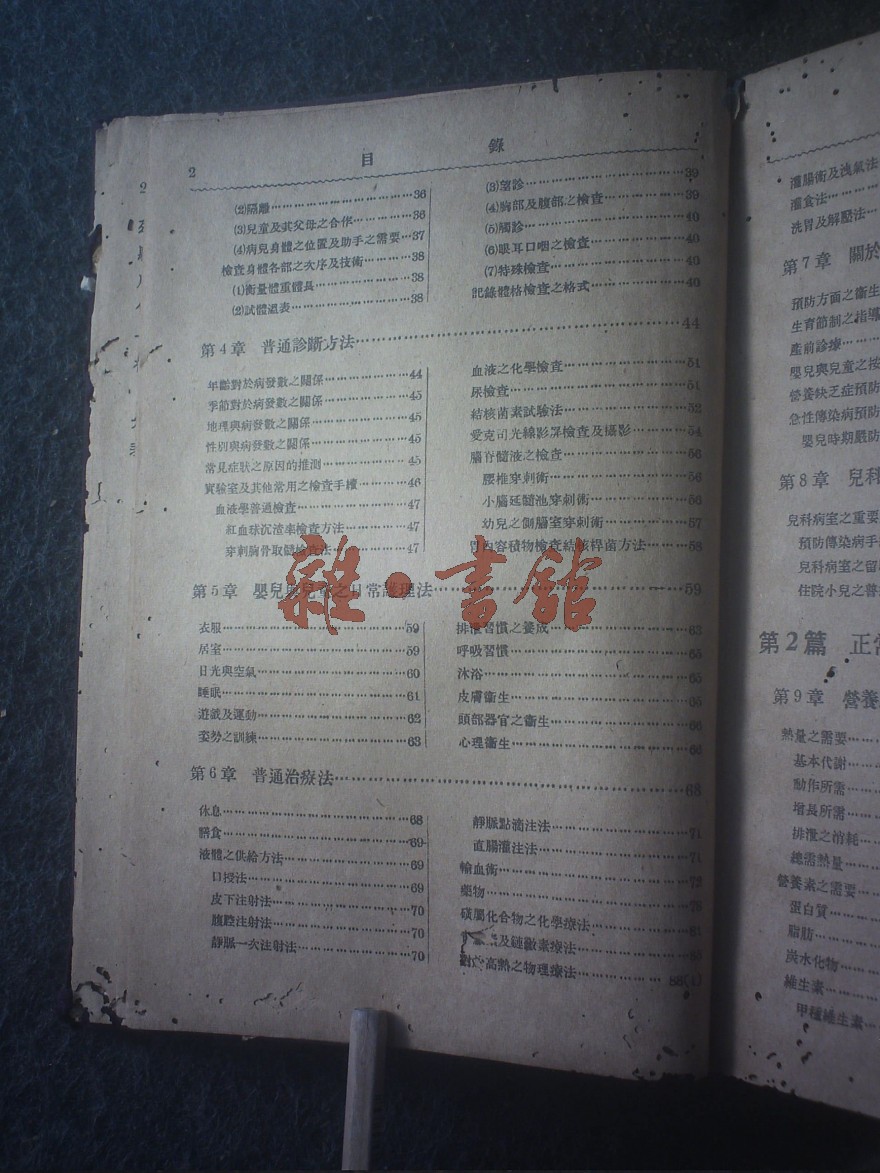 2 目錄
⑵隔離……36
⑶兒童及其父母之合作……36
⑷病兒身體之位置及助手之需要…37
檢查身體各部之次序及技術……38
⑴衡量體重體長……38
⑵試體溫表……38
⑶望診……39
⑷胸部及腹部之檢查……39
⑸觸診……40
⑹眼耳口咽之檢查……40
⑺特殊檢查……40
記錄體格檢查之格式……40
第4章 普通診斷方法……44
年齡對於病發數之關係……44
季節對於病發數之關係……45
地理與病發數之關係……45
性別與病發數之關係……45
常見症狀之原因的推測……45
實驗室及其他常用之檢查手續……46
血液學普通檢查……47
紅血球沉渣率檢查方法……47
穿刺胸骨取髓檢查法……47
血液之化學檢查……51
尿檢查……51
結核菌素試驗法……52
愛克司光線影屏檢查及攝影……54
腦脊髓液之檢查……56
腰椎穿刺術……56
小腦延髓池穿刺術……56
幼兒之側腦室穿刺術……57
胃內容積物檢查結核桿菌方法……58
第5章 嬰兒與兒童之日常護理法……59
衣服……59
居室……59
日光與空氣……60
睡眠……61
遊戲及運動……62
姿勢之訓練……63
排洩習慣之養成……63
呼吸習慣……65
沐浴……65
皮膚衞生……65
頭部器官之衞生……66
心理衞生……66
第6章 普通治療法……68
休息……68
膳食……69
液體之供給方法……69
口授法……69
皮下注射法……70
腹腔注射法……70
靜脈一次注射法……70
靜脈點滴注法……71
直腸灌注法……71
輸血術……73
藥物……78
磺屬化合物之化學療法……81
及鏈黴素療法……85
高熱之物理療法……88(1)
雜·書館
灌腸術及洩氣法
灌食法……
洗胃及解壓法…
第7章 關於
預防方面之衞生
生育節制之指導
產前診療……
嬰兒與兒童之按
營養缺乏症預防
急性傳染病預防
嬰兒時期嚴防
第8章 兒科
兒科病室之重要
預防傳染病手
兒科病室之留
住院小兒之普
第2篇 正常
第9章 營養
熱量之需要……
基本代謝……
動作所需……
增長所需……
排洩之消耗…
總需熱量……
營養素之需要…
蛋白質……
脂肪……
炭水化物……
維生素……
甲種維生素…